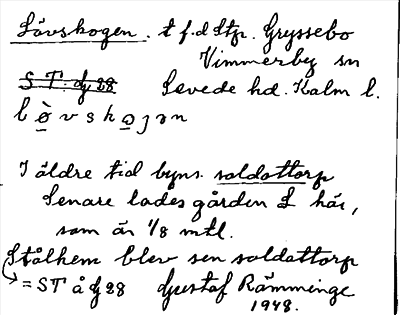 Lövskogen. t f.d ltp. Gryssebo
Vimmerby sn
S T: dj 28 Sevede hd. Kalm l.
l ò v s k o j ə n
I äldre tid byns soldattorp
Senare lades gården L här,
som är 1/8 mtl.
Stålhem blev sen soldattorp
= ST å dj 28 Gustaf Rämminge
1948.